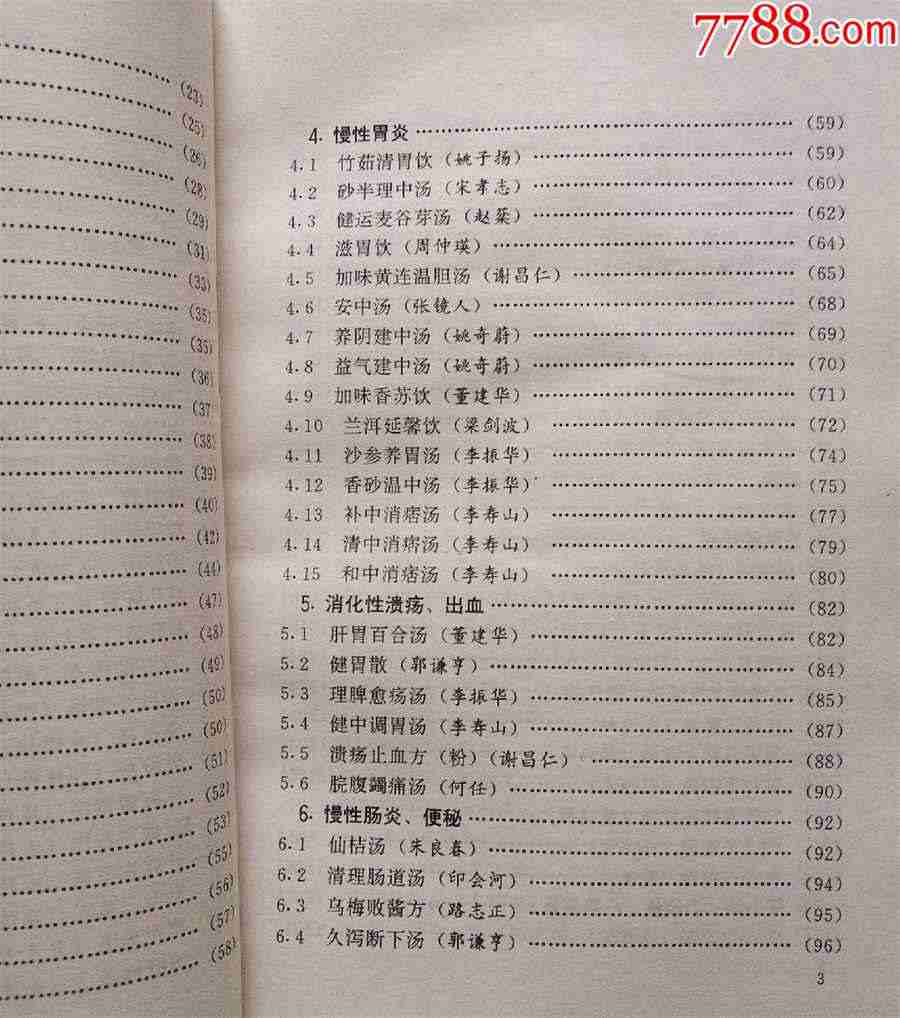 7788.com
(23)
(25)
(26)
(28)
(29)
(31)
(33)
(35)
(35)
(36)
(37)
(38)
(39)
(40)
(42)
(44)
(47)
(48)
(49)
(50)
(50)
(51)
(52)
(53)
(55)
(56)
(57)
(58)
4. 慢性胃炎 (59)
4.1 竹茹清胃饮（姚子扬） (59)
4.2 砂半理中汤（宋孝志） (60)
4.3 健运麦谷芽汤（赵棻） (62)
4.4 滋胃饮（周仲瑛） (64)
4.5 加味黄连温胆汤（谢昌仁） (65)
4.6 安中汤（张镜人） (68)
4.7 养阴建中汤（姚奇蔚） (69)
4.8 益气建中汤（姚奇蔚） (70)
4.9 加味香苏饮（董建华） (71)
4.10 兰洱延馨饮（梁剑波） (72)
4.11 沙参养胃汤（李振华） (74)
4.12 香砂温中汤（李振华） (75)
4.13 补中消痞汤（李寿山） (77)
4.14 清中消痞汤（李寿山） (79)
4.15 和中消痞汤（李寿山） (80)
5. 消化性溃疡、出血 (82)
5.1 肝胃百合汤（董建华） (82)
5.2 健胃散（郭谦亨） (84)
5.3 理脾愈疡汤（李振华） (85)
5.4 健中调胃汤（李寿山） (87)
5.5 溃疡止血方（粉）（谢昌仁） (88)
5.6 脘腹蠲痛汤（何任） (90)
6. 慢性肠炎、便秘 (92)
6.1 仙桔汤（朱良春） (92)
6.2 清理肠道汤（印会河） (94)
6.3 乌梅败酱方（路志正） (95)
6.4 久泻断下汤（郭谦亨） (96)
3